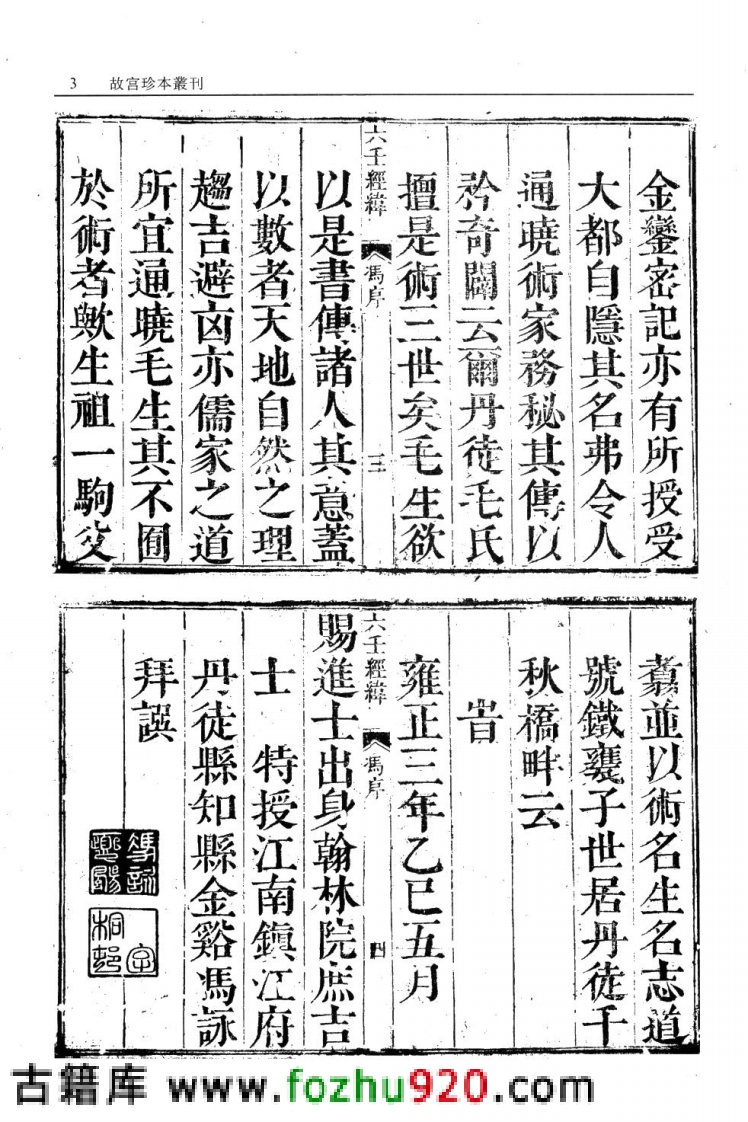 3 故宮珍本叢刊
金鑾密記亦有所授受
大都自隱其名弗令人
通曉術家務秘其傳以
矜奇闢云爾丹徒毛氏
擅是術三世矣毛生欲
六壬經緯 馮序 三
以是書傳諸人其意蓋
以數者天地自然之理
趨吉避凶亦儒家之道
所宜通曉毛生其不囿
於術者歟生祖一駒父
並以術名生名志道
號鐵襄子世居丹徒千
秋橋畔云
旹
雍正三年乙巳五月
六壬經緯 馮序 四
賜進士出身翰林院庶吉
士 特授江南鎮江府
丹徒縣知縣金谿馮詠
拜譔
馮詠
桐邨
古籍库 www.fozhu920.com